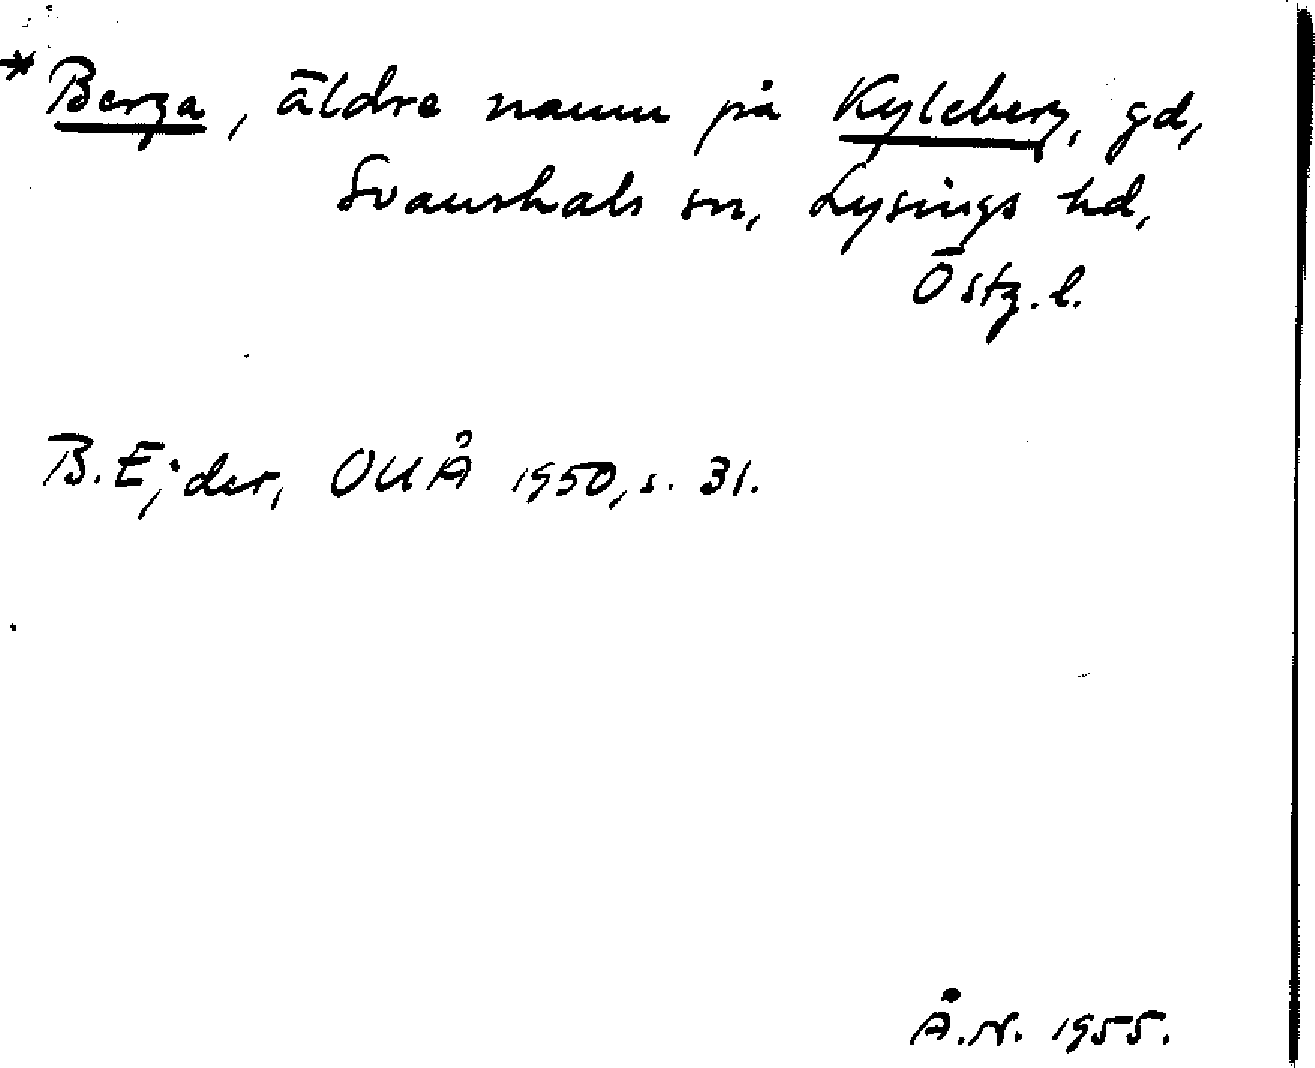 * Berga, äldre namn på Kyleberg, gd,
Svanshals sn, Lysings hd,
Östg. l.
B. Ejder, OUÅ 1950, s. 31.
Å.N. 1955.